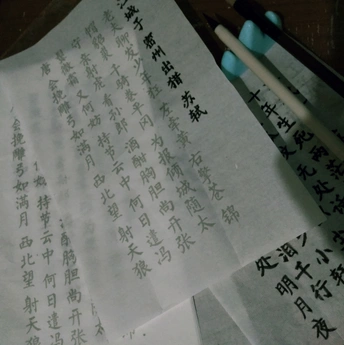 城子密州出猎 苏轼
老夫聊发少年狂左牵黄右擎苍锦
帽貂裘千骑卷平冈为报倾城随太
守亲射虎看孙郎酒酣胸胆尚开张
鬓微霜又何妨持节云中何日遣冯
唐会挽雕弓如满月西北望射天狼
胸胆尚开张
妨持节云中何日遣冯
会挽雕弓如满月西北望射天狼
十年生
两茫
无处话
小轩
泪千行
处明月夜